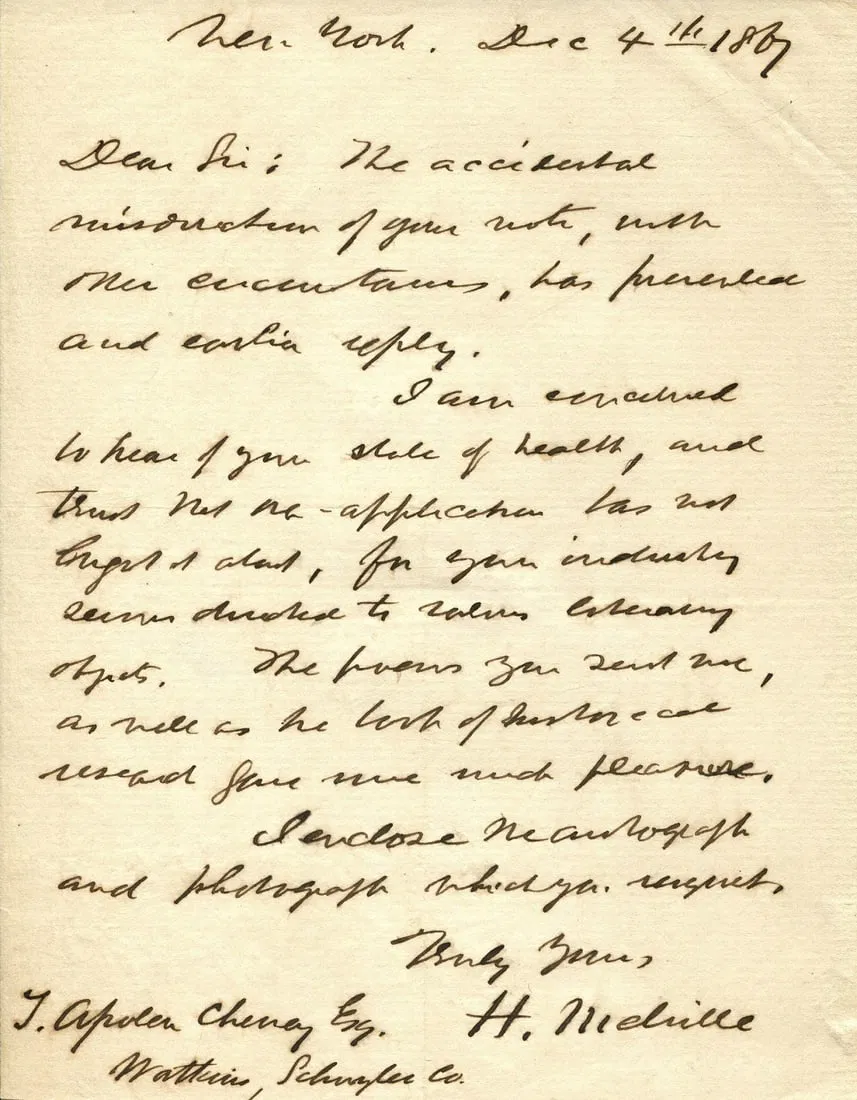 New York. Dec 4th 1867
Dear Sir: The accidental
misdirection of your note, with
other circumstances, has prevented
and earlier reply.
I am concerned
to hear of your state of health, and
trust that over-application has not
brought it about, for your industry
seems directed to various literary
objects. The poems you sent me,
as well as the book of historical
research gave me much pleasure.
I enclose the autograph
and photograph which you request.
Truly Yours
T. Apoleon Cheney Esq. H. Melville
Watkins, Schuyler Co.